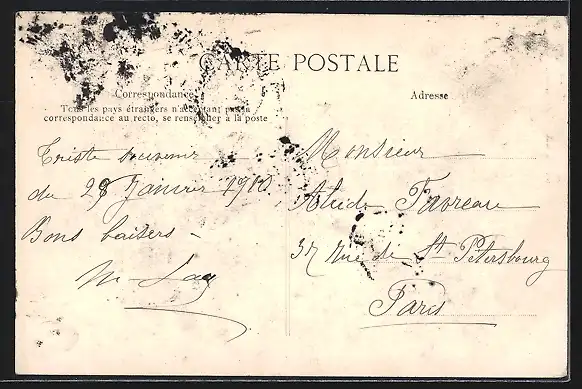 CARTE POSTALE
Correspondance
Tous les pays étrangers n'acceptant pas la
correspondance au recto, se renseigner à la poste
Adresse
Triste souvenir
du 28 Janvier 1910
Bons baisers -
M.
Monsieur
Favreau
37 Rue de St Pétersbourg
Paris